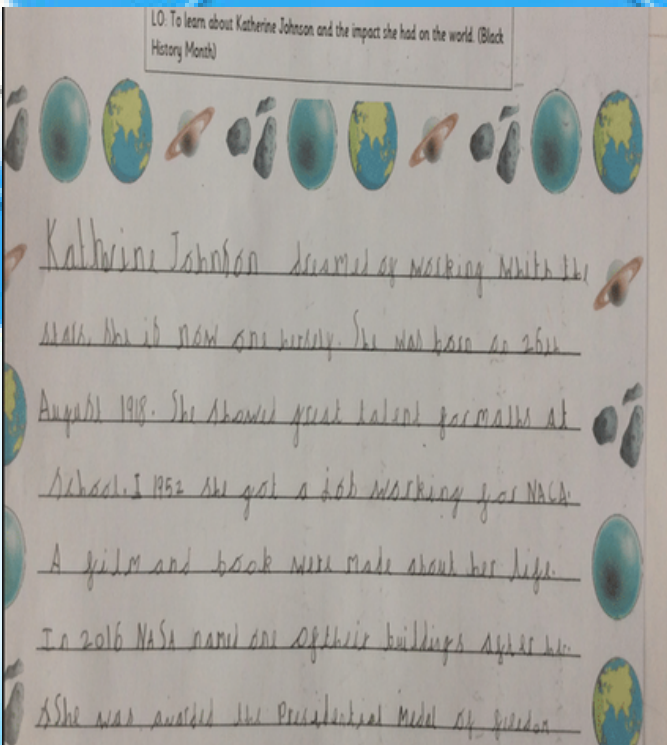 LO: To learn about Katherine Johnson and the impact she had on the world. (Black
History Month)
Kathrine Johnson dreamed of working whith the
stars. she is now one herself. She was born on 26th
August 1918. She showed great talent for maths at
school. I 1952 she got a job working for NACA.
A film and book were made about her life.
In 2016 NASA named one of their buildings after her.
She was awarded the Presidential Medel of freedom